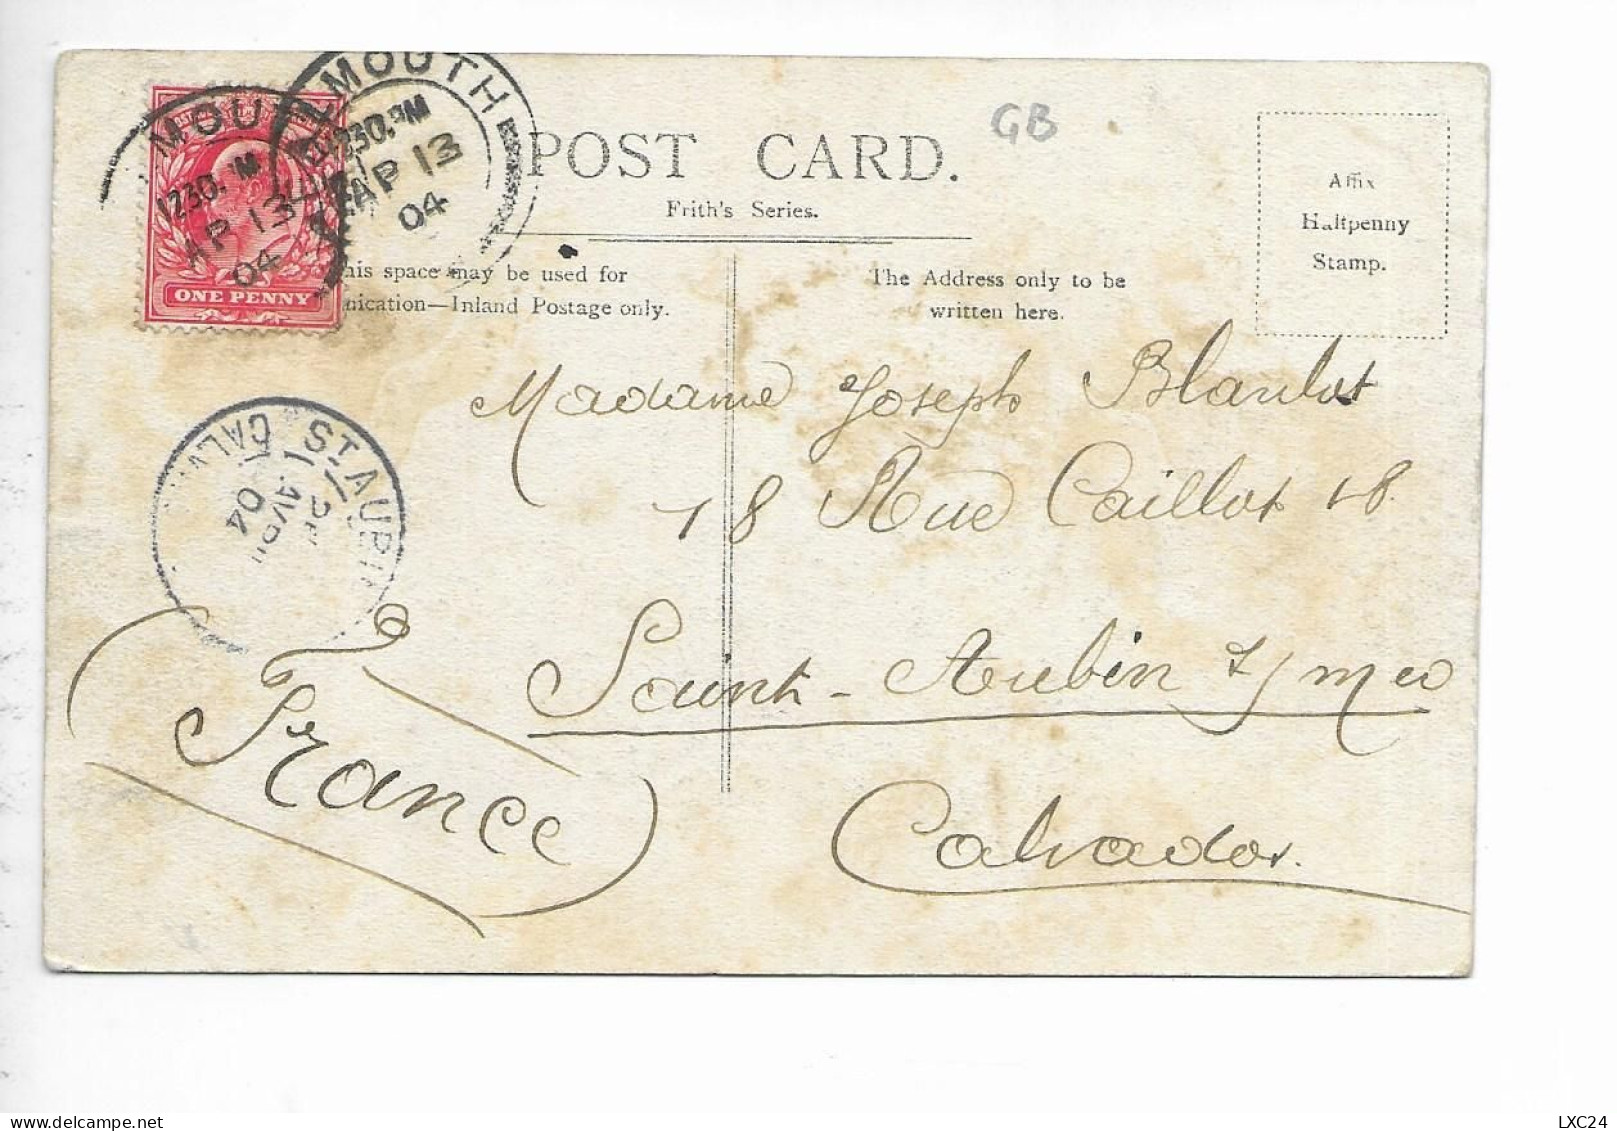 FALMOUTH
1230.PM
AP 13
04
MOU
1230. M
AP 13
04
ONE PENNY
GB
POST CARD.
Frith's Series.
his space may be used for
nication—Inland Postage only.
The Address only to be
written here.
Affix
Halfpenny
Stamp.
Madame Joseph
18 Rue Caillot 18
Saint-Aubin
Calvados.
(France)
ST AUBIN
CALV
12
AVRIL
04
LXC24